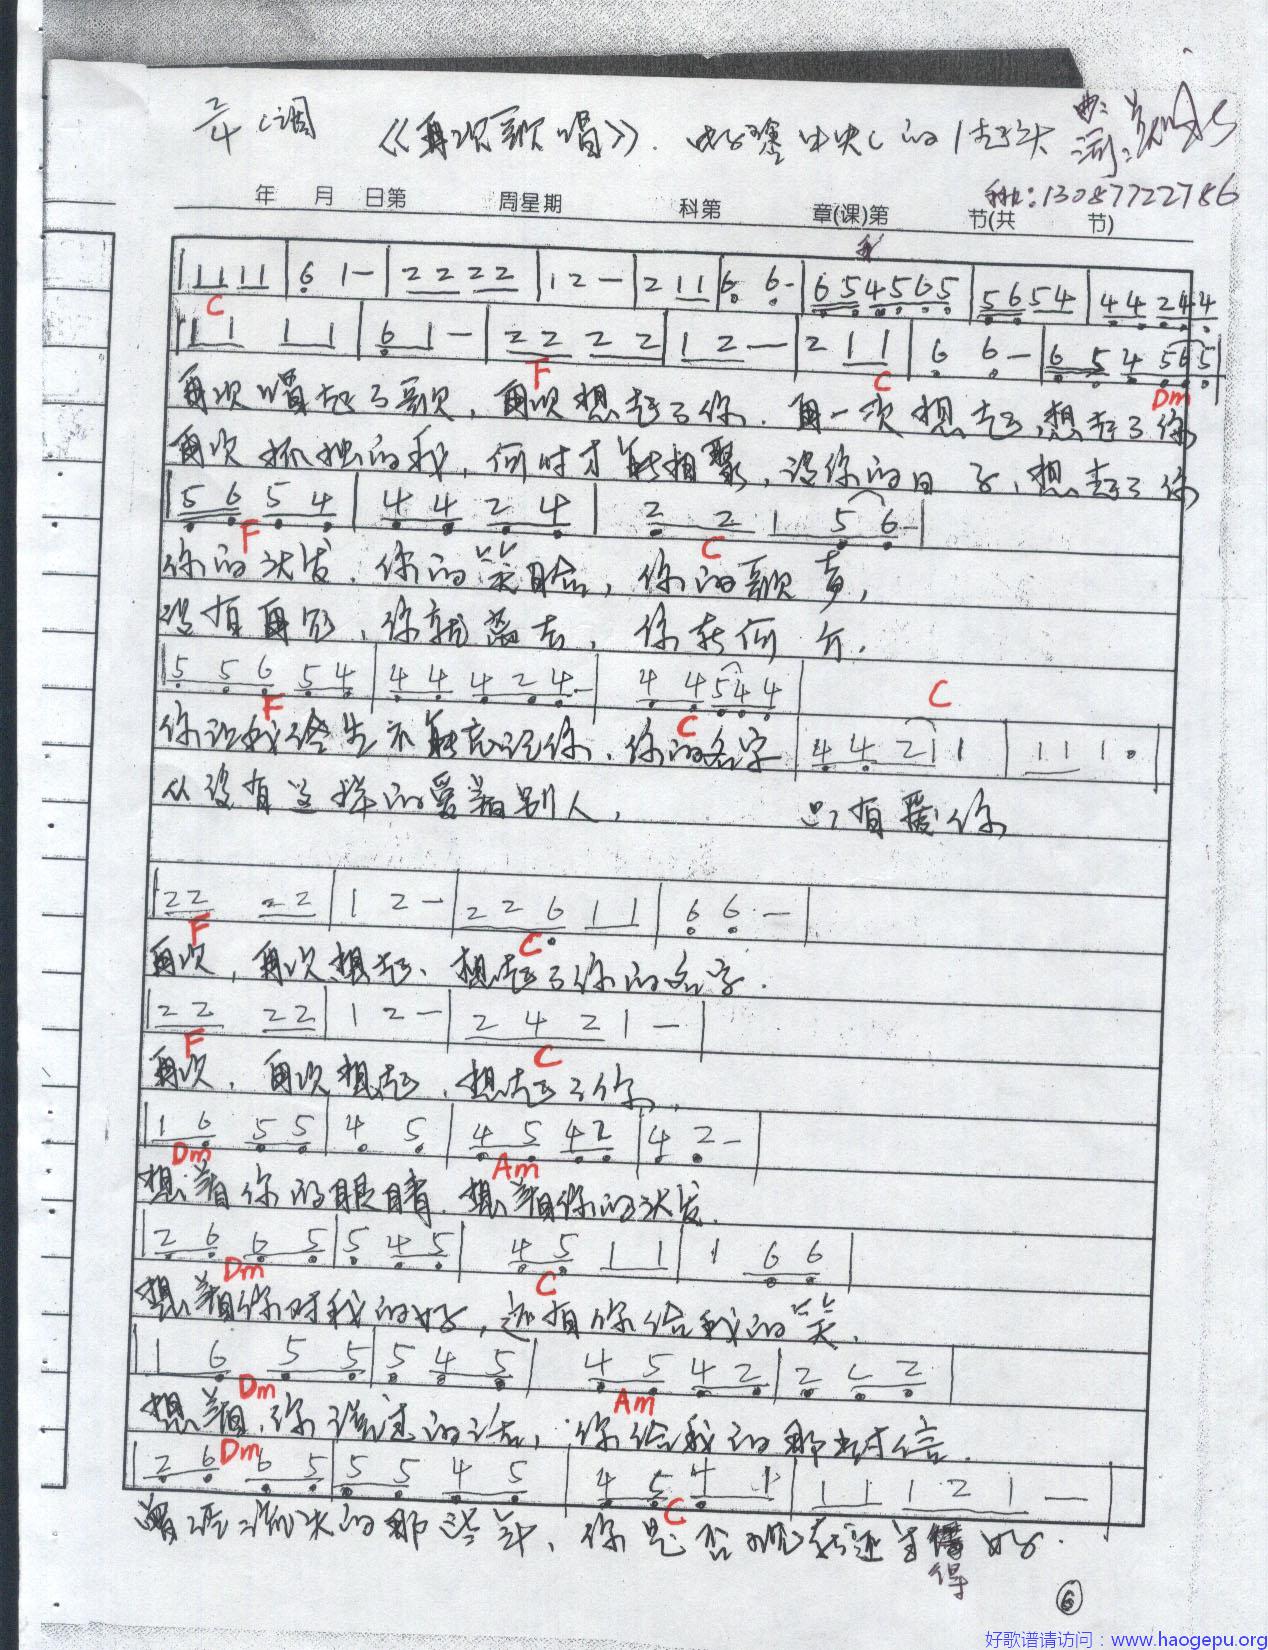 2/4 C调 《再次歌唱》. 好 中央C的1起头 曲:
词:
手机:13087722786
年 月 日第 周星期 科第 章(课)第 节(共 节)
| 11 11 | 6 1 — | 22 22 | 12 — | 2 11 | 6 6 - | 654565 | 5654 | 44 244
C
| 11 11 | 6 1 — | 22 22 | 1 2 — | 2 11 | 6 6 — | 6 5 4 565 |
F C Dm
再次唱起了歌,再次想起了你.再一次想起,想起了你
再次孤独的我,何时才能相聚,没你的日子,想起了你
| 5 6 5 4 | 4 4 2 4 | 2 2 1 5 6 — |
F C
你的头发.你的笑脸,你的歌声,
没有再见,你就离去,你在何方.
| 5 5 6 5 4 | 4 4 4 2 4 - | 4 4 5 4 4 |
F C C
你让我终生不能忘记你.你的名字 | 4 4 2 1 1 | 1 1 1 0 |
从没有这样的爱着别人, 只有爱你
| 22 22 | 1 2 — | 2 2 6 1 1 | 6 6 . — |
F C
再次,再次想起、想起了你的名字.
| 22 22 | 1 2 — | 2 4 2 1 — |
F C
再次,再次想起,想起了你,
| 1 6 5 5 | 4 5 | 4 5 4 2 | 4 2 — |
Dm Am
想着你的眼睛.想着你的头发.
| 2 6 6 5 | 5 4 5 | 4 5 1 1 | 1 6 6 |
Dm C
想着你对我的好,还有你给我的笑.
| 1 6 5 5 | 5 4 5 | 4 5 4 2 | 2 2 2 |
Dm Am
想着,你说过的话,你给我的那封信.
| 2 6 6 5 | 5 5 4 5 | 4 5 4 1 | 1 1 1 2 1 — |
Dm C
曾经流泪的那些年、你是否现在还过得好.
得
⑥
好歌谱请访问:www.haogepu.org